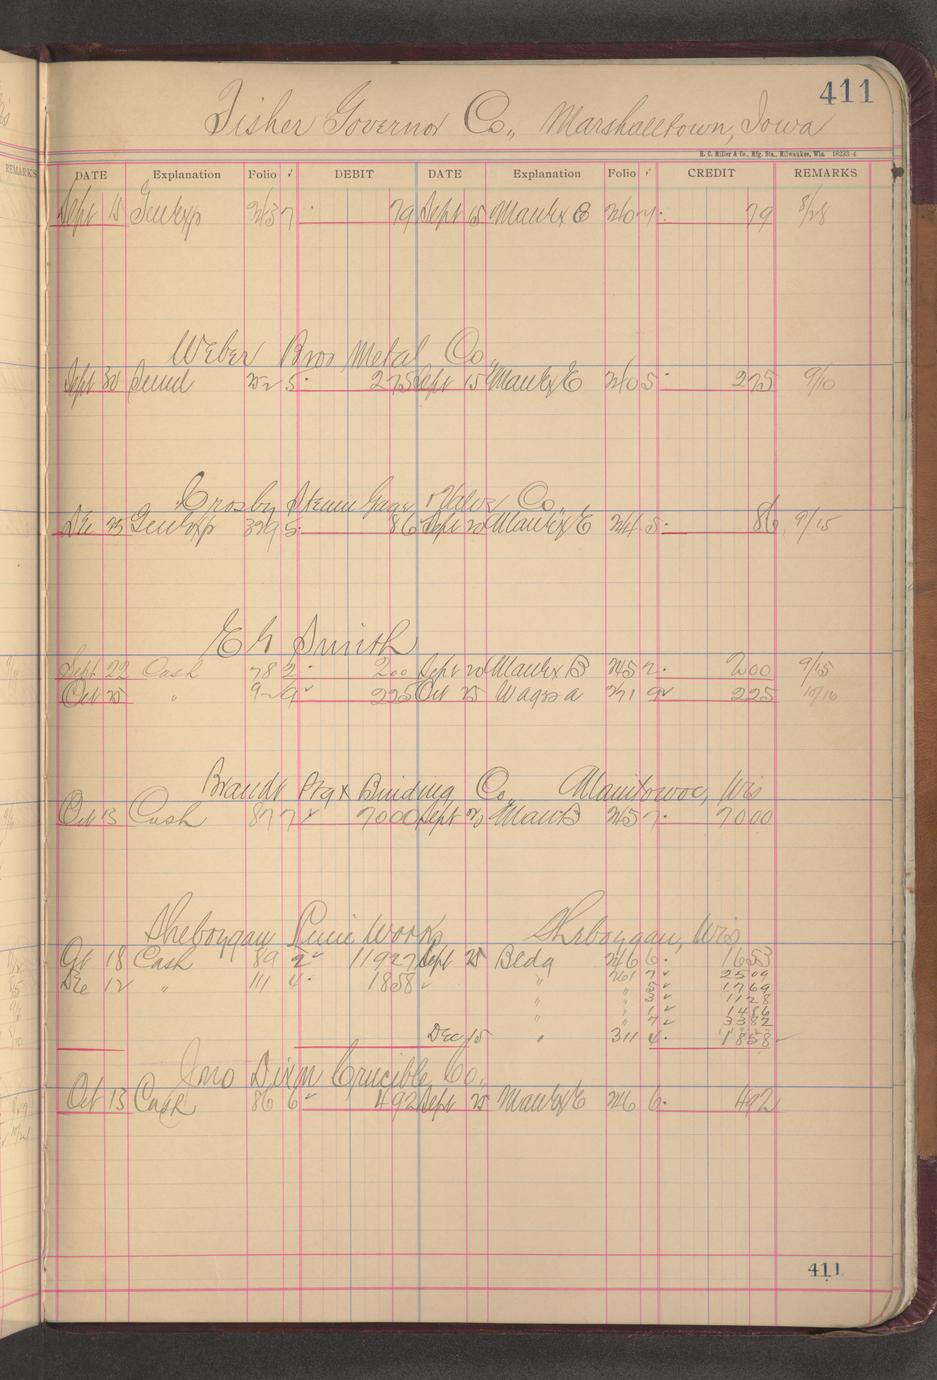 411
Fisher Governor Co., Marshalltown, Iowa
H. C. Miller & Co., Mfg. Sta., Milwaukee, Wis. 18233-4
REMARKS
DATE Explanation Folio ✓ DEBIT DATE Explanation Folio ✓ CREDIT REMARKS
Sept 15 Gen Exp 243 7 79 Sept 15 Man Ex E 240 7 79 8/28
Weber Bros Metal Co.,
Sept 30 5 275 Sept 15 Man Ex E 240 5 275 9/10
Crosby Steam Gage & Valve Co.
Dec 25 Gen Exp 329 5 86 Sept 20 Man Ex E 244 5 86 9/15
E G Smith
Sept 22 Cash 78 2 200 Sept 20 Man Ex B 245 2 200 9/15
Oct 25 " 9 225 Oct 25 271 9 225 10/10
Brandt Ptg & Binding Co., Manitowoc, Wis
Oct 13 Cash 87 7 7000 Sept 20 Man B 245 7 7000
Sheboygan Lime Works Sheboygan, Wis
Oct 18 Cash 89 2 11927 Sept 25 Bldg 246 6 1653
Dec 12 " 111 4 1858 " 261 7 2509
" " 5 1769
" " 3 1128
" " 1 1486
" " 7 3382
Dec 15 " 311 4 1858
Jno Dixon Crucible Co.,
Oct 13 Cash 86 6 492 Sept 25 Man Ex E 246 6 492
411